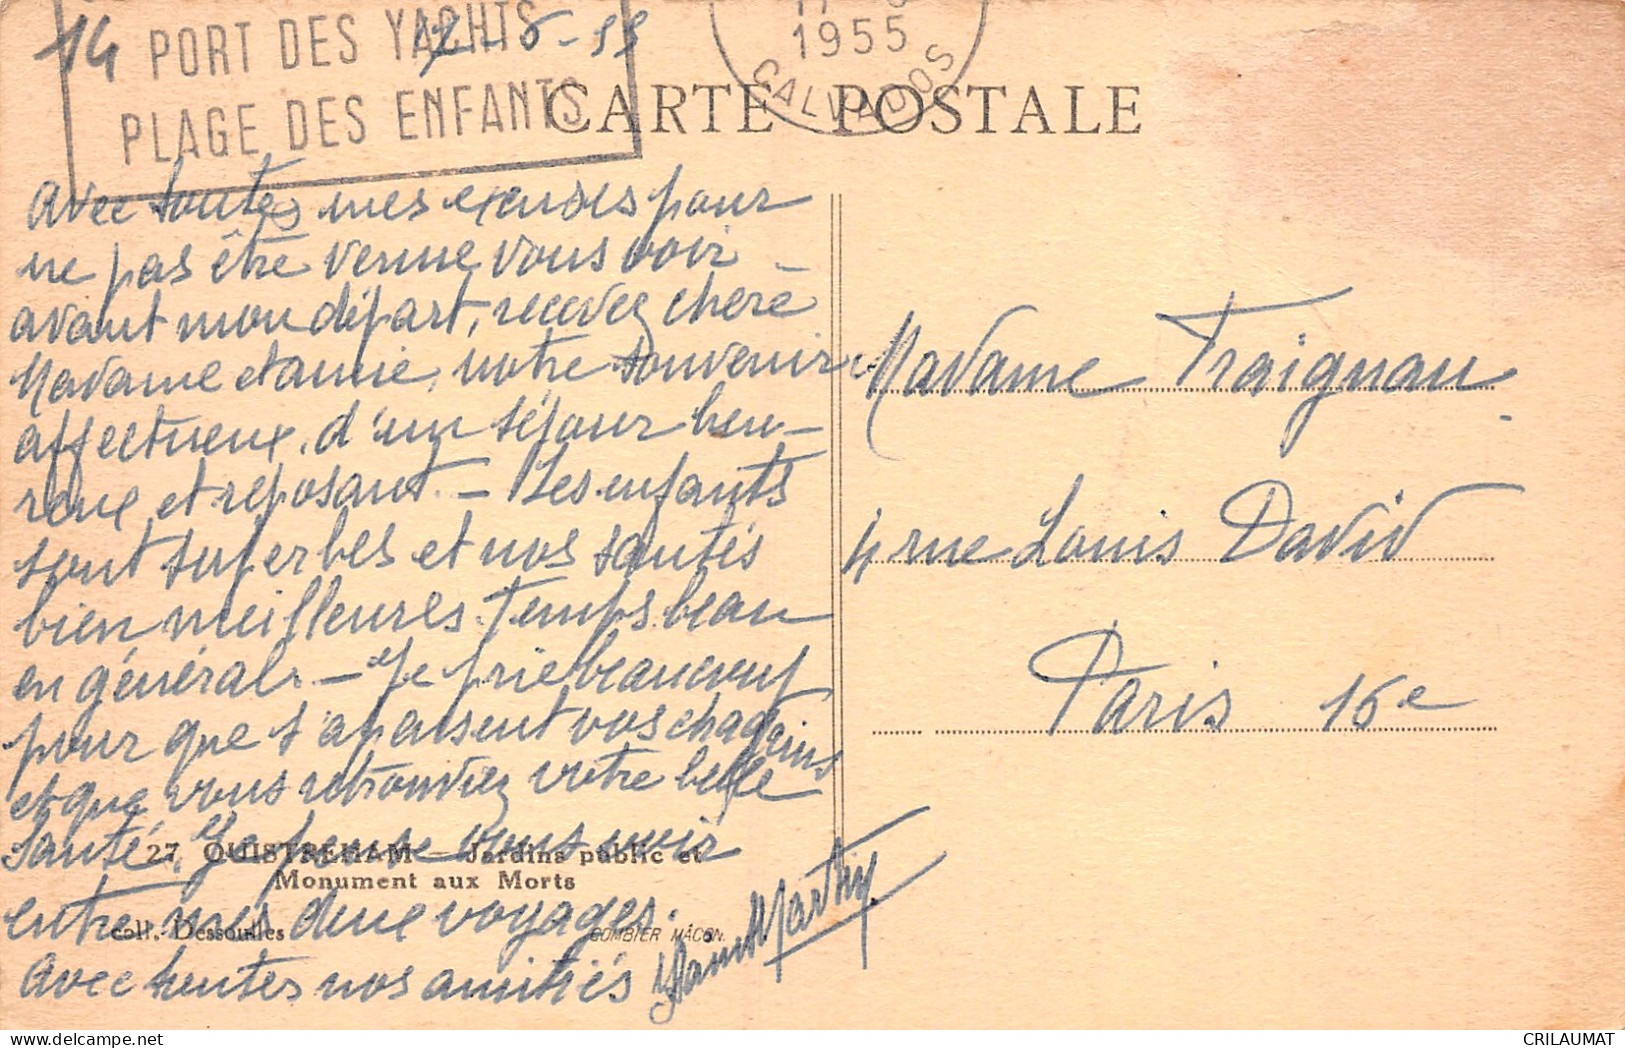 14
PORT DES YACHTS
PLAGE DES ENFANTS
1955
CALVADOS
CARTE POSTALE
Avec toutes mes excuses pour
ne pas être venue vous voir
avant mon départ, recevez chère
Madame et amie, notre souvenir
affectueux, d'un séjour heu-
reux et reposant. — Les enfants
sont superbes et nos santés
bien meilleures. Temps beau
en général. — Je prie beaucoup
pour que s'apaisent vos chagrins
et que vous retrouviez votre belle
santé. Je pense vous voir
entre mes deux voyages.
Avec toutes nos amitiés
Madame Fraignau
4 rue Louis David
Paris 16e
27. OUISTREHAM — Jardins public et
Monument aux Morts
coll. Dessoulles
COMBIER MÂCON
CRILAUMAT